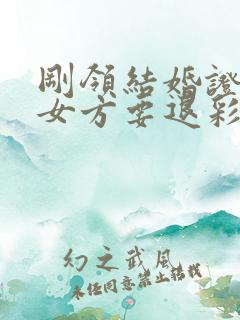 剛領結婚證
女方要退彩
幻之武風
未經同意禁止轉載